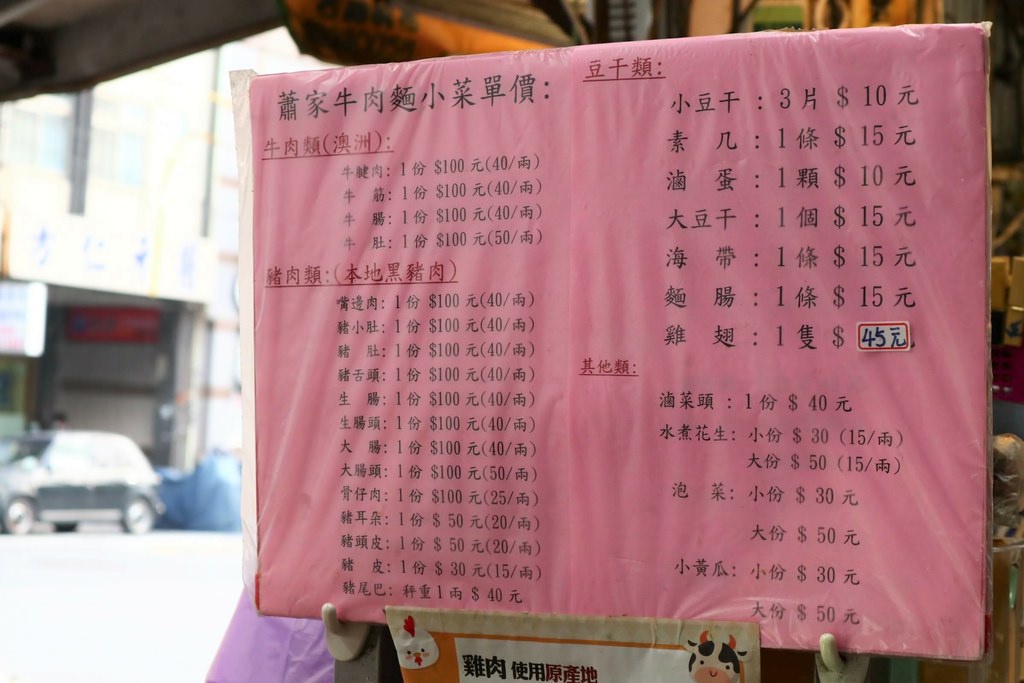 蕭家牛肉麵小菜單價：
牛肉類(澳洲)：
牛腱肉：1份 $100 元(40/兩)
牛 筋：1份 $100 元(40/兩)
牛 腸：1份 $100 元(40/兩)
牛 肚：1份 $100 元(50/兩)
豬肉類：(本地黑豬肉)
嘴邊肉：1份 $100 元(40/兩)
豬小肚：1份 $100 元(40/兩)
豬 肚：1份 $100 元(40/兩)
豬舌頭：1份 $100 元(40/兩)
生 腸：1份 $100 元(40/兩)
生腸頭：1份 $100 元(40/兩)
大 腸：1份 $100 元(40/兩)
大腸頭：1份 $100 元(50/兩)
骨仔肉：1份 $100 元(25/兩)
豬耳朵：1份 $ 50 元(20/兩)
豬頭皮：1份 $ 50 元(20/兩)
豬 皮：1份 $ 30 元(15/兩)
豬尾巴：秤重1兩 $ 40 元
豆干類：
小豆干：3片 $ 10 元
素 几：1條 $ 15 元
滷 蛋：1顆 $ 10 元
大豆干：1個 $ 15 元
海 帶：1條 $ 15 元
麵 腸：1條 $ 15 元
雞 翅：1隻 $ 45元
其他類：
滷菜頭：1份 $ 40 元
水煮花生：小份 $ 30 (15/兩)
大份 $ 50 (15/兩)
泡 菜：小份 $ 30 元
大份 $ 50 元
小黃瓜：小份 $ 30 元
大份 $ 50 元
雞肉 使用原產地